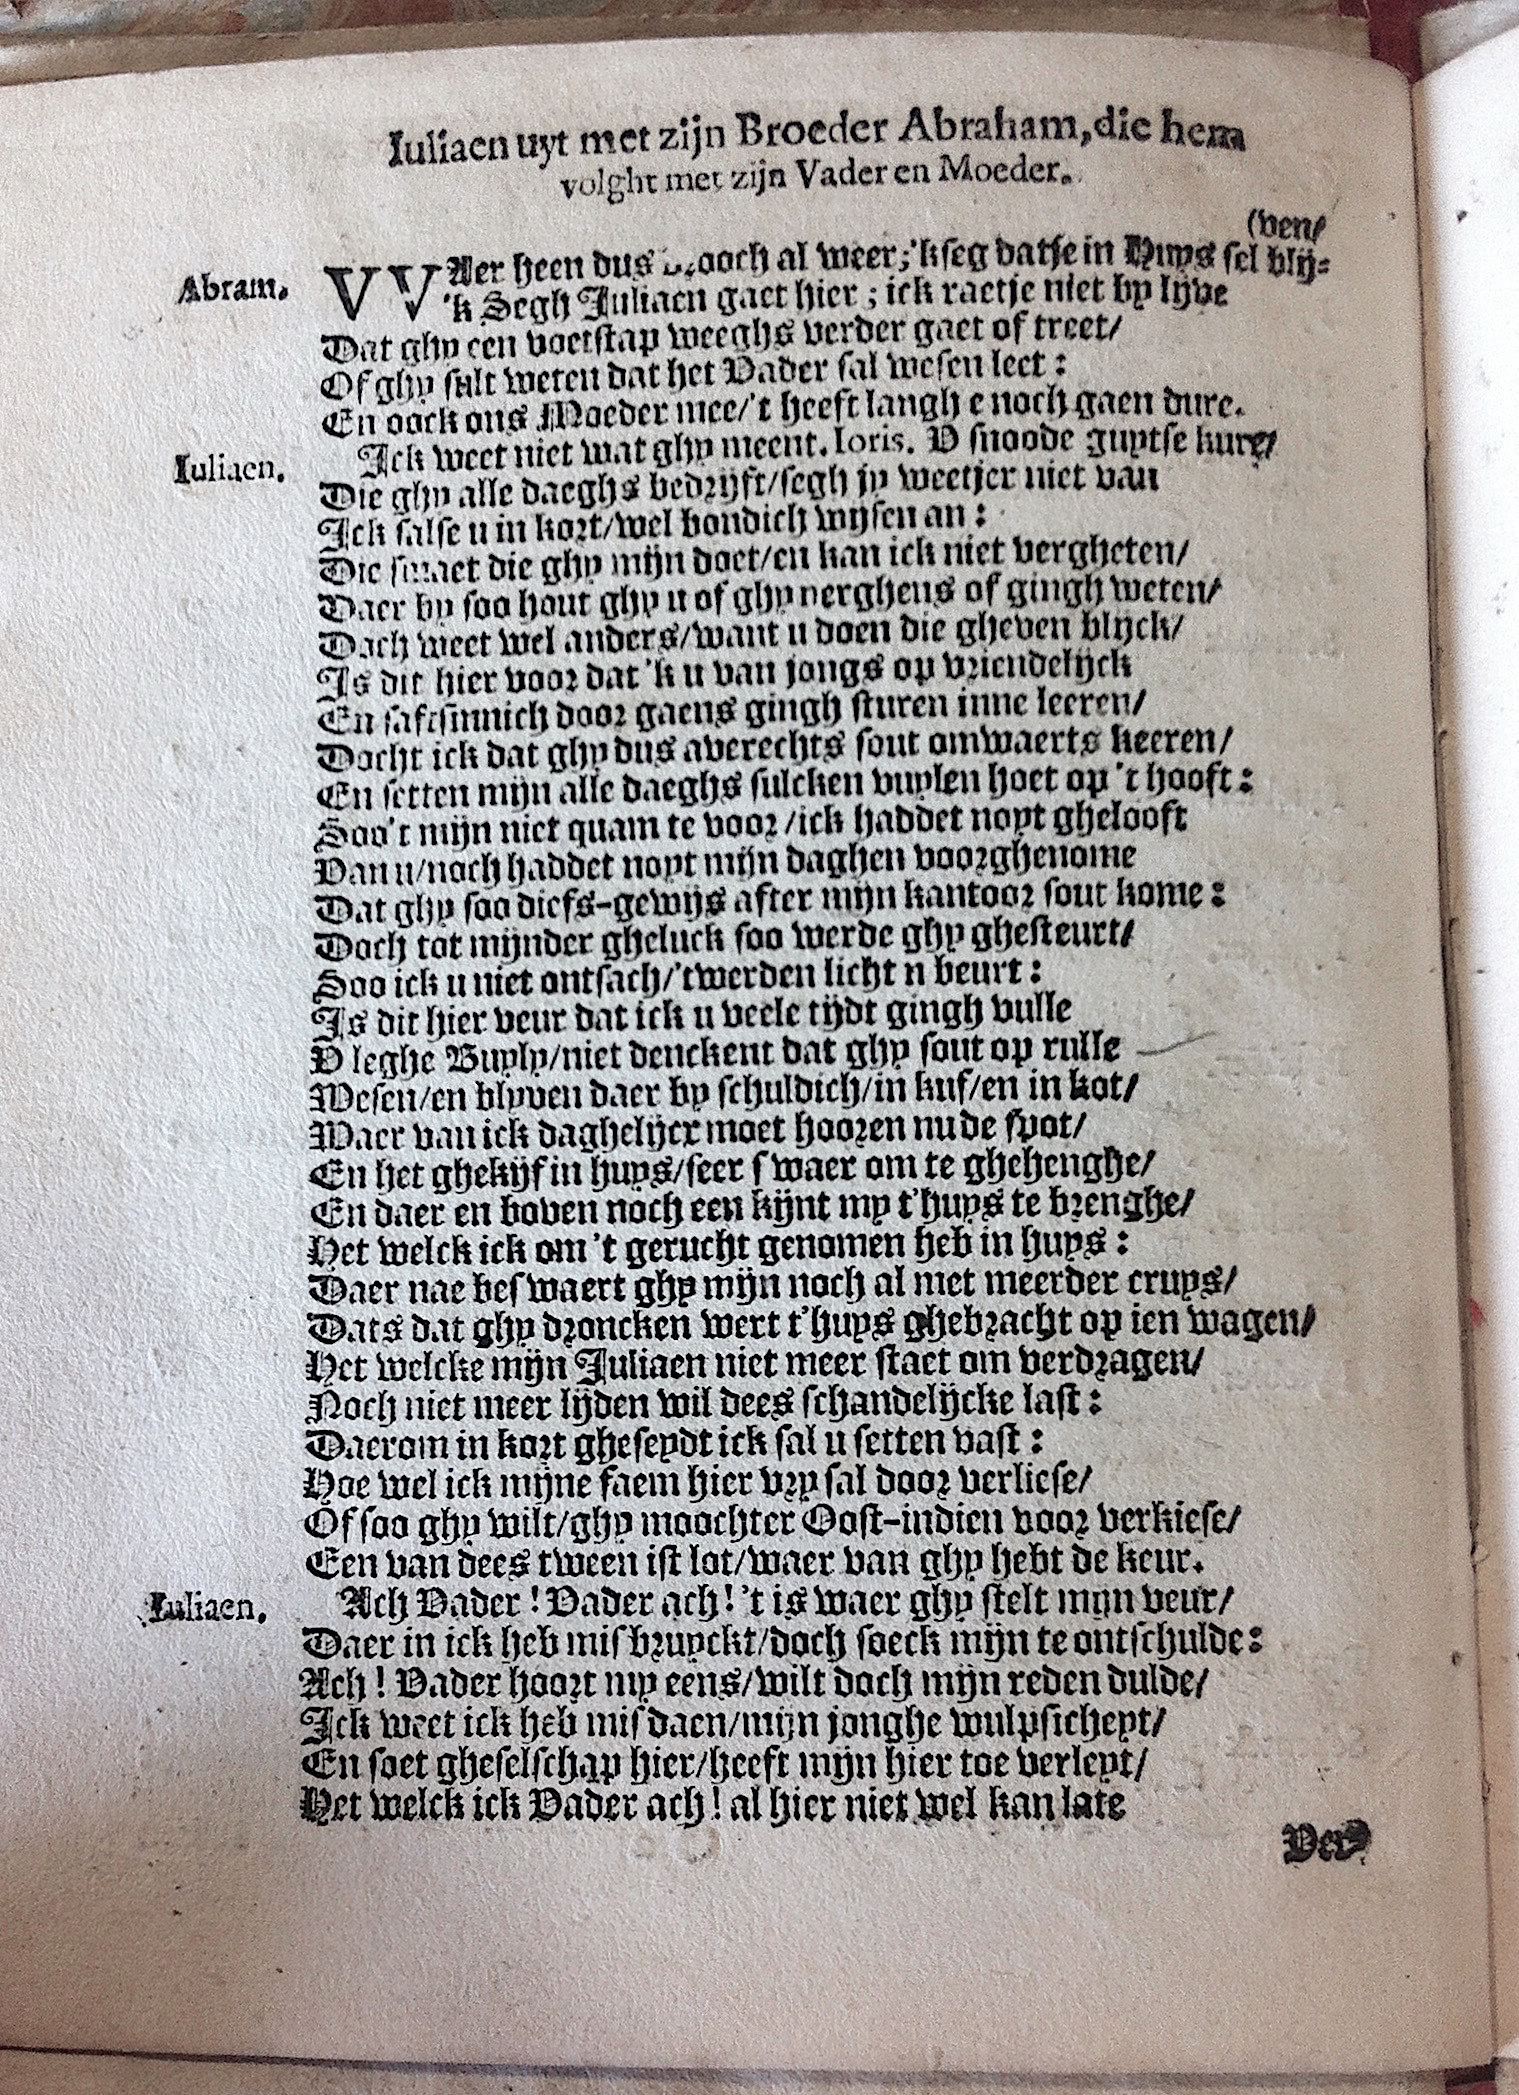 Iuliaen uyt met zijn Broeder Abraham, die hem
volght met zijn Vader en Moeder.
(ven/
Abram. VVAer heen dus brooch al weer; 'kseg datse in Huys sel blij-
'k Segh Juliaen gaet hier; ick raetje niet by lijve
Dat ghy een voetstap weeghs verder gaet of treet/
Of ghy sult weten dat het Vader sal wesen leet:
En oock ons Moeder mee/'t heeft langh e noch gaen dure.
Iuliaen. Ick weet niet wat ghy meent. Ioris. V snoode guytse kure/
Die ghy alle daeghs bedrijft/segh jy weetjer niet van
Ick salse u in kort/wel bondich wijsen an:
Die smaet die ghy mijn doet/en kan ick niet vergheten/
Daer by soo hout ghy u of ghy nerghens of gingh weten/
Doch weet wel anders/want u doen die gheven blijck/
Is dit hier voor dat 'k u van jongs op vriendelijck
En saftsinnich door gaens gingh sturen inne leeren/
Docht ick dat ghy dus averechts sout omwaerts keeren/
En setten mijn alle daeghs sulcken vuylen hoet op 't hooft:
Soo't mijn niet quam te voor/ick haddet noyt ghelooft
Van u/noch haddet noyt mijn daghen voorghenome
Dat ghy soo diefs-gewijs after mijn kantoor sout kome:
Doch tot mijnder gheluck soo werde ghy ghesteurt/
Soo ick u niet ontsach/'twerden licht n beurt:
Is dit hier veur dat ick u veele tijdt gingh vulle
V leghe Buyly/niet denckent dat ghy sout op rulle
Wesen/en blyven daer by schuldich/in kuf/en in kot/
Waer van ick daghelijcx moet hooren nu de spot/
En het ghekijf in huys/seer swaer om te ghehenghe/
En daer en boven noch een kijnt my t'huys te brenghe/
Het welck ick om 't gerucht genomen heb in huys:
Daer nae beswaert ghy mijn noch al met meerder cruys/
Dats dat ghy droncken wert t'huys ghebracht op ien wagen/
Het welcke mijn Juliaen niet meer staet om verdragen/
Noch niet meer lijden wil dees schandelijcke last:
Daerom in kort gheseydt ick sal u setten vast:
Hoe wel ick mijne faem hier vry sal door verliese/
Of soo ghy wilt/ghy moochter Oost-indien voor verkiese/
Een van dees tween ist lot/waer van ghy hebt de keur.
Iuliaen. Ach Vader! Vader ach! 't is waer ghy stelt mijn veur/
Daer in ick heb misbruyckt/doch soeck mijn te ontschulde:
Ach! Vader hoort my eens/wilt doch mijn reden dulde/
Ick weet ick heb misdaen/mijn jonghe wulpsicheyt/
En soet gheselschap hier/heeft mijn hier toe verleyt/
Het welck ick Vader ach! al hier niet wel kan late
Ver